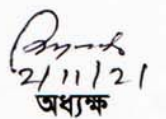 2/11/21
অধ্যক্ষ